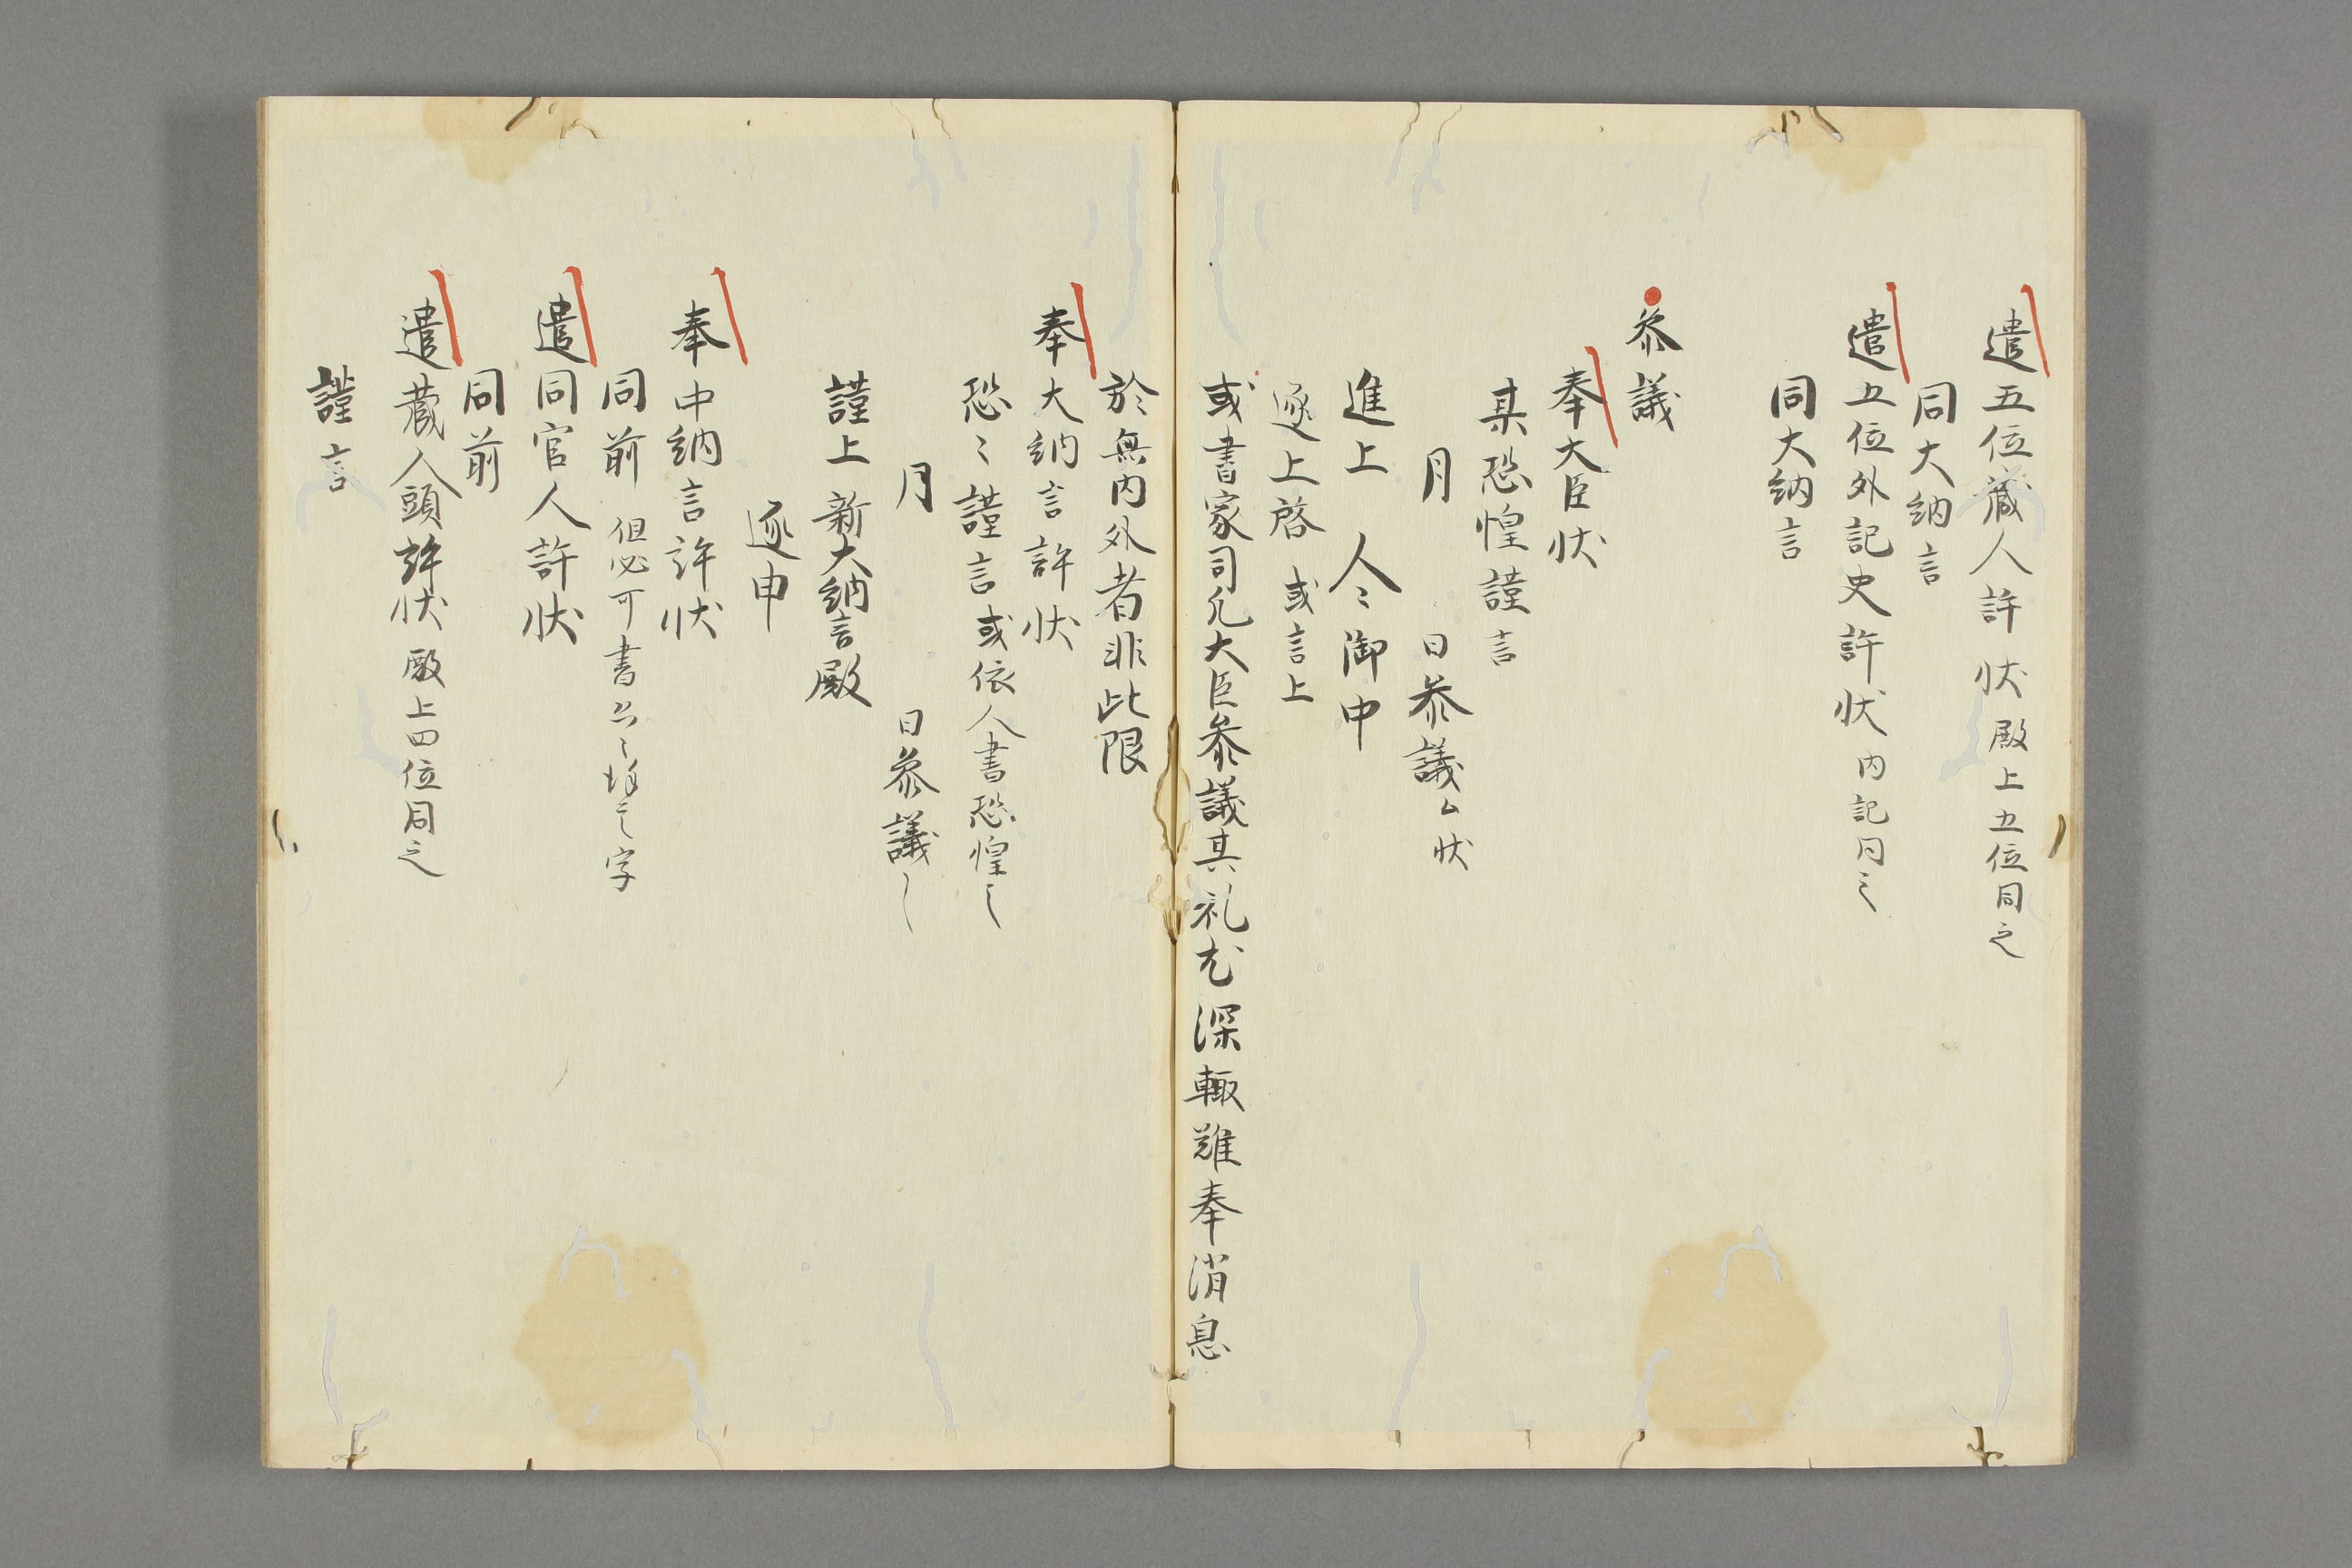 遣五位蔵人許状 殿上五位同之
同大納言
遣五位外記史許状 内記同之
同大納言
参議
奉大臣状
某恐惶謹言
月 日参議ム状
進上 人々御中
逐上啓 或言上
或書家司凡大臣参議其礼尤深輙難奉消息
於無内外者非此限
奉大納言許状
恐々謹言或依人書恐惶之
月 日参議〻
謹上 新大納言殿
逐申
奉中納言許状
同前 但必可書 字
遣同官人許状
同前
遣蔵人頭許状 殿上四位同之
謹言